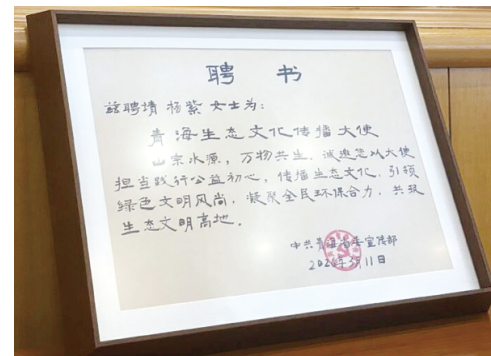 聘 书
兹聘请 杨紫 女士为：
青海生态文化传播大使
山宗水源，万物共生。诚邀您以大使
担当践行公益初心，传播生态文化，引领
绿色文明风尚，凝聚全民环保合力，共筑
生态文明高地。
中共青海省委宣传部
2026年3月11日